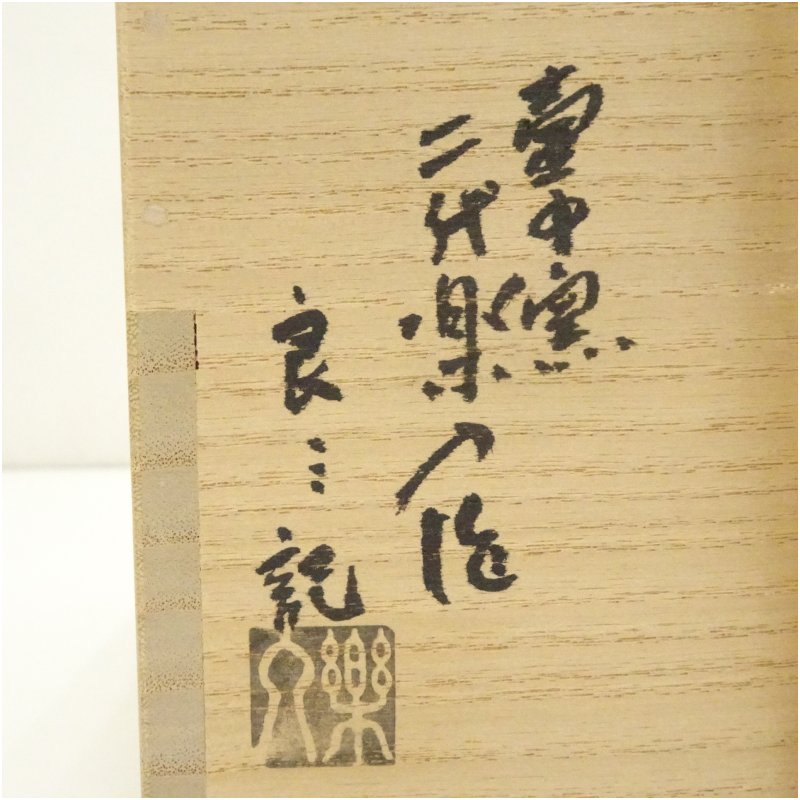 壷中窯
二代楽入作
良三記
樂入